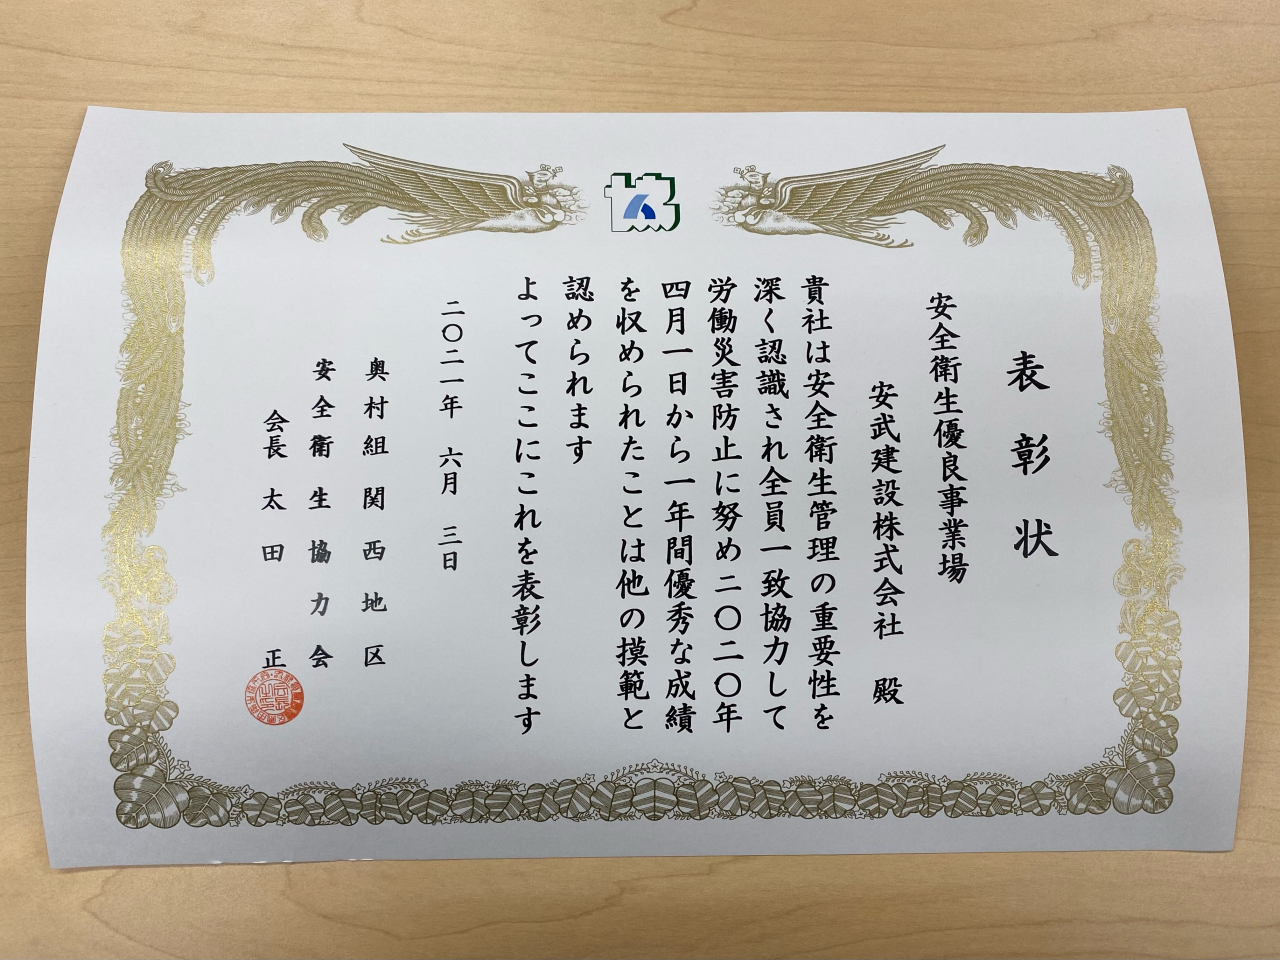 表彰状
安全衛生優良事業場
安武建設株式会社 殿
貴社は安全衛生管理の重要性を
深く認識され全員一致協力して
労働災害防止に努め二〇二〇年
四月一日から一年間優秀な成績
を収められたことは他の摸範と
認められます
よってここにこれを表彰します
二〇二一年 六月 三日
奥村組関西地区
安全衛生協力会
会長 太田 正